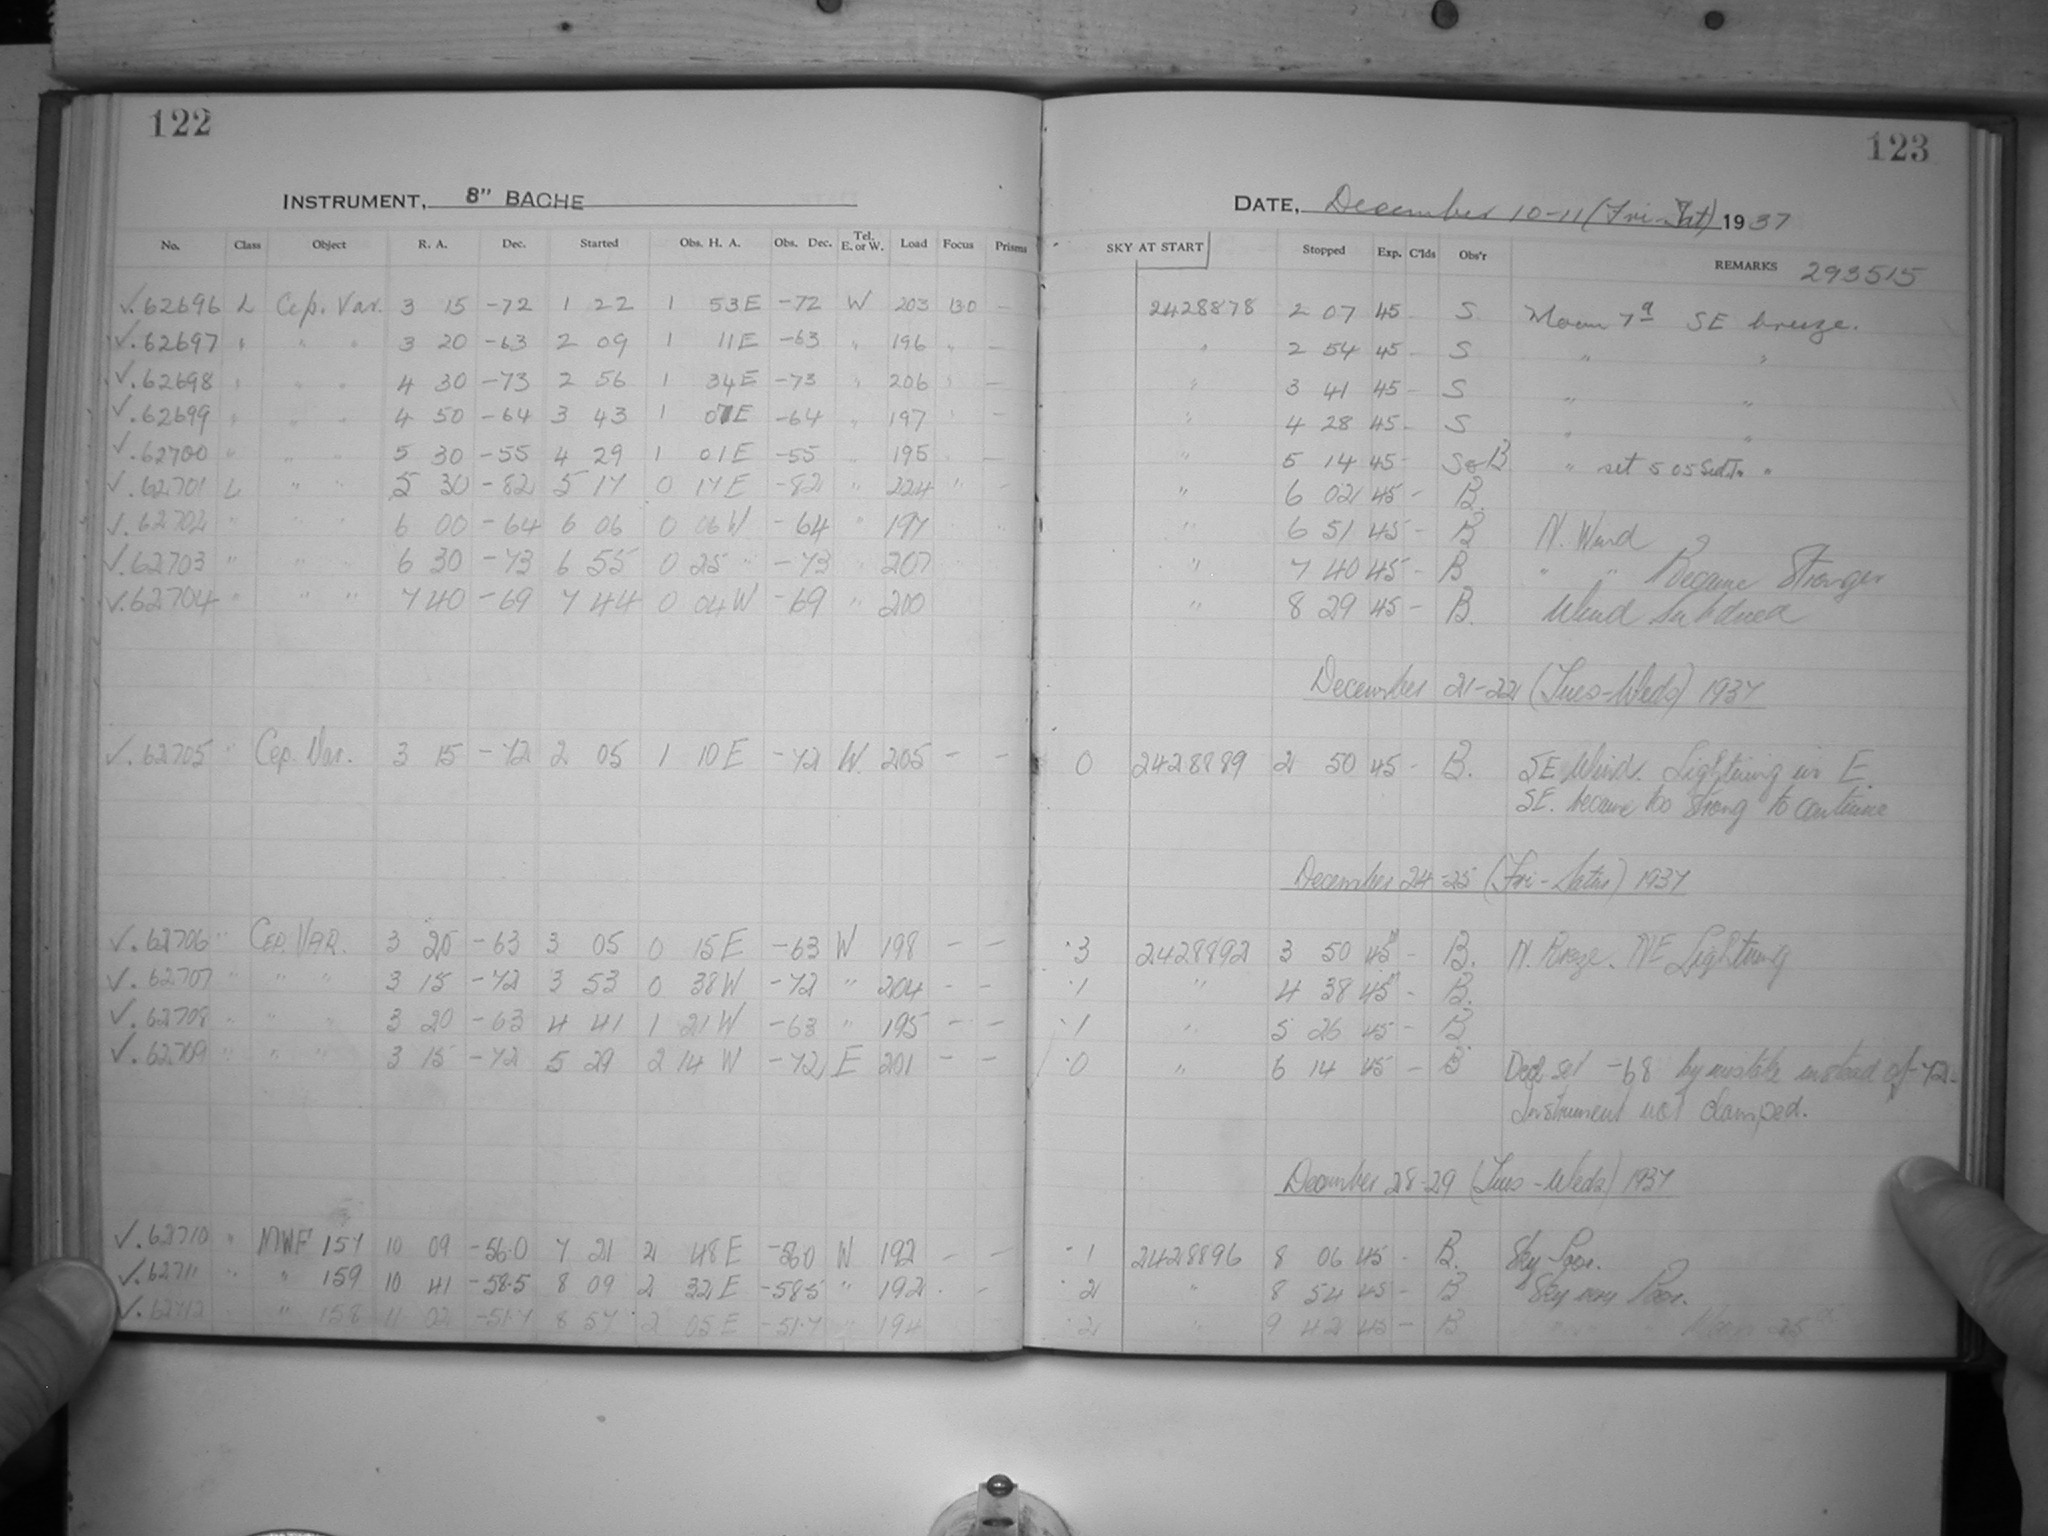 122
INSTRUMENT, 8" BACHE
No. Class Object R. A. Dec. Started Obs. H. A. Obs. Dec. Tel. E. or W. Load Focus Prisms
√.62696 L Cep. Var. 3 15 -72 1 22 1 53E -72 W 203 130 -
√.62697 " " " 3 20 -63 2 09 1 11E -63 " 196 " -
√.62698 " " " 4 30 -73 2 56 1 34E -73 " 206 " -
√.62699 " " " 4 50 -64 3 43 1 07E -64 " 197 " -
√.62700 " " " 5 30 -55 4 29 1 01E -55 " 195 " -
√.62701 L " " 5 30 -82 5 17 0 17E -82 " 224 " -
√.62702 " " " 6 00 -64 6 06 0 06W -64 " 197
√.62703 " " " 6 30 -73 6 55 0 25 " -73 " 207
√.62704 " " " 7 40 -69 7 44 0 04W -69 " 200
√.62705 " Cep. Var. 3 15 -72 2 05 1 10E -72 W. 205 - -
√.62706 " CEP. VAR. 3 20 -63 3 05 0 15E -63 W 198 - -
√.62707 " " " 3 15 -72 3 53 0 38W -72 " 204 - -
√.62708 " " " 3 20 -63 4 41 1 21W -63 " 195 - -
√.62709 " " " 3 15 -72 5 29 2 14 W -72 E 201 - -
√.62710 " MWF 157 10 09 -56.0 7 21 2 48E -56.0 W 192 - -
√.62711 " " 159 10 41 -58.5 8 09 2 32E -58.5 " 192 - -
√.62712 " " 158 11 02 -51.7 8 57 2 05E -51.7 " 194
123
DATE, December 10-11 (Fri-Sat) 1937
SKY AT START Stopped Exp. C'lds Obs'r REMARKS 293515
2428878 2 07 45 - S. Moon 7d SE breeze.
" 2 54 45 - S " "
" 3 41 45 - S " "
" 4 28 45 - S " "
" 5 14 45 - S&B " set 5 05 "
" 6 02 45 - B.
" 6 51 45 - B N. Wind
" 7 40 45 - B " " Became Stronger
" 8 29 45 - B. Wind subdued
December 21-22 (Tues-Weds) 1937
0 2428889 2 50 45 - B. SE. Wind. Lightning in E.
SE. became too strong to continue
December 24-25 (Fri-Satur) 1937
.3 2428892 3 50 45 - B. N. Breeze. NE Lightning
.1 " 4 38 45 - B.
.1 " 5 26 45 - B
.0 " 6 14 45 - B Decl set -68 by mistake instead of -72.
Instrument not clamped.
December 28-29 (Tues-Weds) 1937
.1 2428896 8 06 45 - B. Sky Poor.
.2 " 8 54 45 - B Sky very Poor.
.2 " 9 42 45 - B " " " Moon 25d